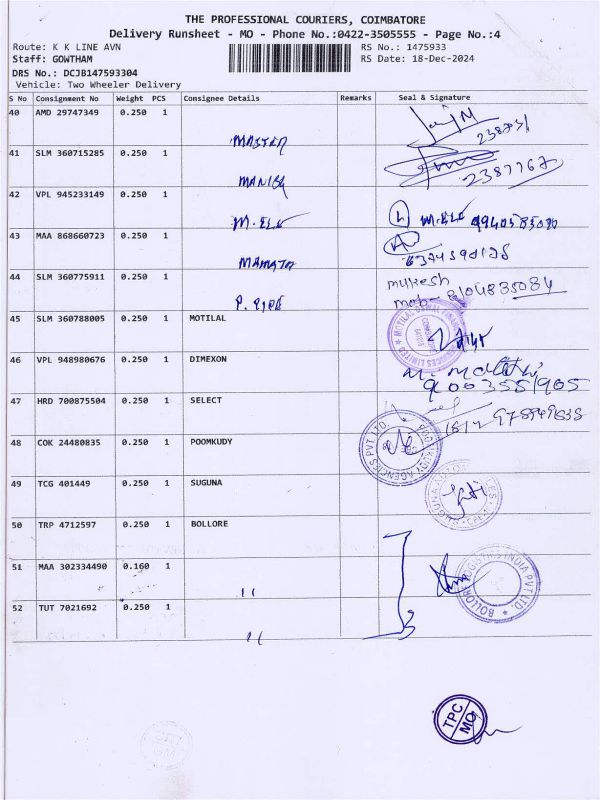 THE PROFESSIONAL COURIERS, COIMBATORE
Delivery Runsheet - MO - Phone No.:0422-3505555 - Page No.:4
Route: K K LINE AVN RS No.: 1475933
Staff: GOWTHAM RS Date: 18-Dec-2024
DRS No.: DCJB147593304
Vehicle: Two Wheeler Delivery
S No Consignment No Weight PCS Consignee Details Remarks Seal & Signature
40 AMD 29747349 0.250 1
MASTER
41 SLM 360715285 0.250 1
MANISH 2387767
42 VPL 945233149 0.250 1
M.ELE M.ELE 9940585080
43 MAA 868660723 0.250 1
MAMATA
44 SLM 360775911 0.250 1 mukesh
mob- 8104835084
45 SLM 360788005 0.250 1 MOTILAL
46 VPL 948980676 0.250 1 DIMEXON
9003551905
47 HRD 700875504 0.250 1 SELECT
48 COK 24480835 0.250 1 POOMKUDY POOMKUDY AGENCIES PVT LTD.
49 TCG 401449 0.250 1 SUGUNA
50 TRP 4712597 0.250 1 BOLLORE
51 MAA 302334490 0.160 1 BOLLORE LOGISTICS INDIA PVT LTD.
52 TUT 7021692 0.250 1
TPC
MO